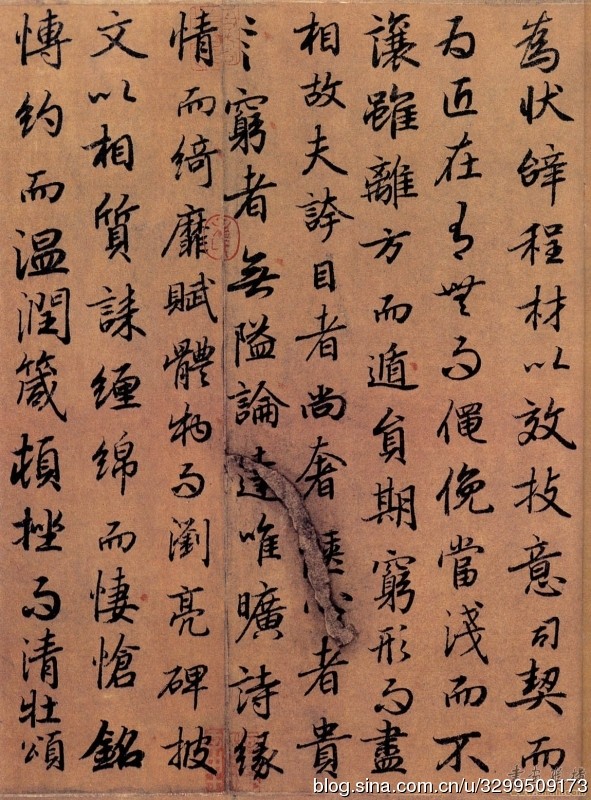 為狀辤程材以效技意司契而
為匠在有無而僶俛當淺而不
讓雖離方而遁員期窮形而盡
相故夫誇目者尚奢愜心者貴
窮者無隘論達唯曠詩緣
情而綺靡賦體物而瀏亮碑披
文以相質誄纏綿而悽愴銘
愽約而温潤箴頓挫而清壯頌
blog.sina.com.cn/u/3299509173